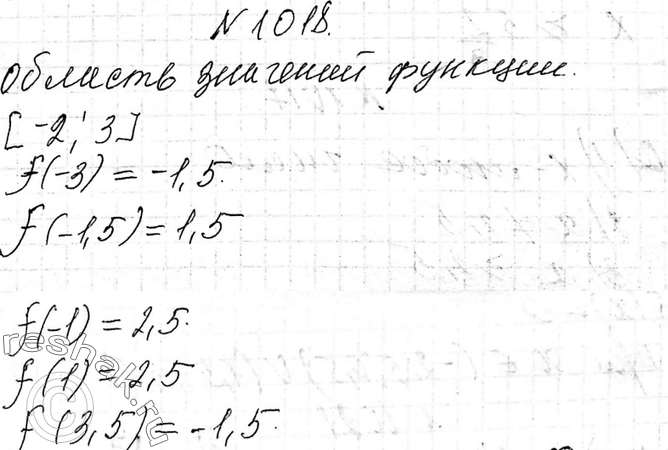 N 1018.
область значений функции.
[-2; 3]
f(-3) = -1,5.
f(-1,5) = 1,5
f(-1) = 2,5.
f(1) = 2,5
f(3,5) = -1,5.
reshak.ru